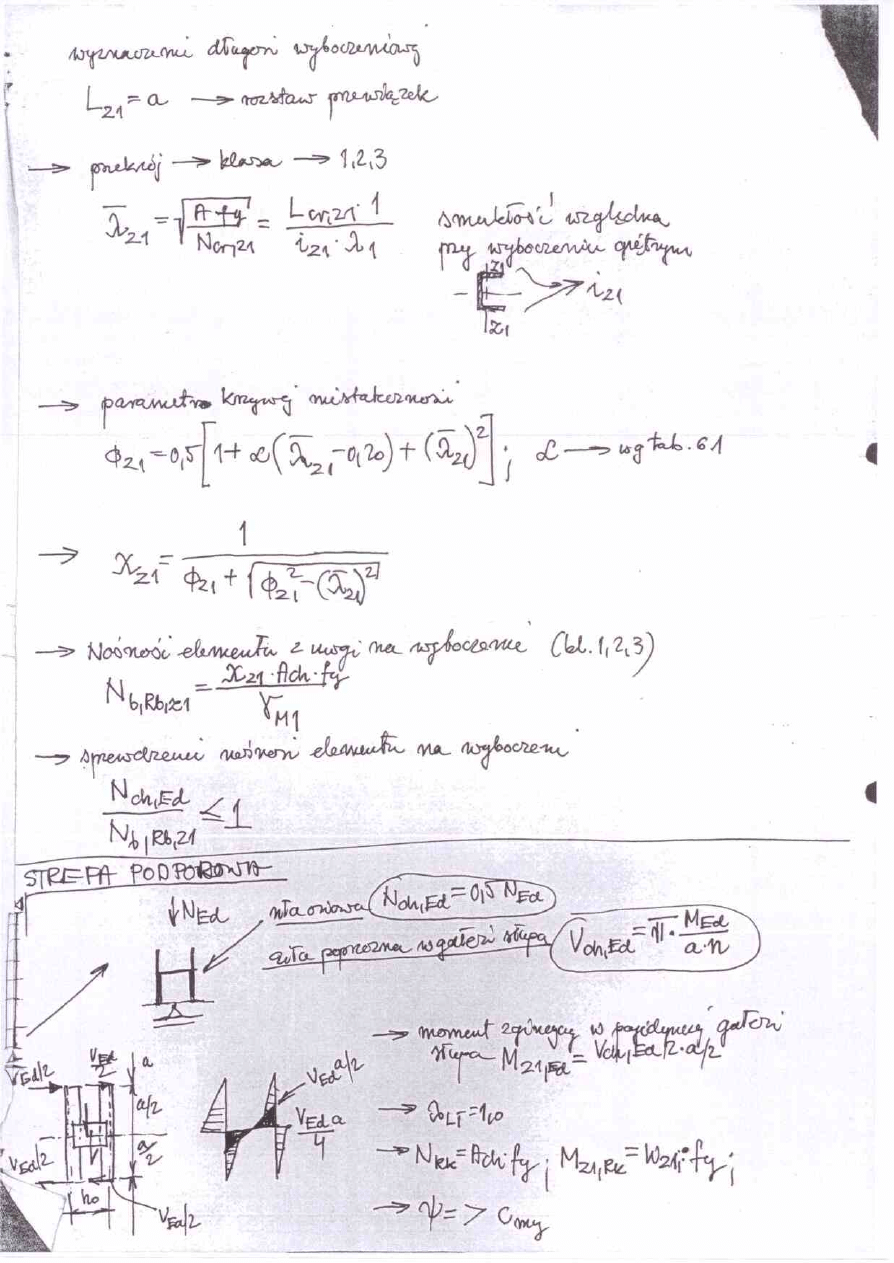 wyznaczeni długoń wyboczeniowj
L_z1 = a → rozstaw przewiązek
→ przekrój → klasa → 1,2,3
λ̅_z1 = √(A·fy / Ncr,z1) = (Lcr,z1 · 1) / (i_z1 · λ_1)
smukłość względna
przy wyboczeniu giętnym
z1
→ i_z1
z1
→ parametr krzywej niestateczności
Φ_z1 = 0,5 [1 + α (λ̅_z1 - 0,20) + (λ̅_z1)²] ; α → wg tab. 6.1
→ χ_z1 = 1 / (Φ_z1 + √(Φ_z1² - (λ̅_z1)²))
→ Nośność elementu z uwagi na wyboczenie (kl. 1,2,3)
N_b,Rb,z1 = (χ_z1 · Ach · fy) / γ_M1
→ sprawdzeni nośnoni elementu na wyboczeni
N_ch,Ed / N_b,Rb,z1 ≤ 1
STREFA PODPOROWA
↓N_Ed siła osiowa N_ch,Ed = 0,5 N_Ed
siła poprzeczna w gałęzi słupa V_ch,Ed = π · M_Ed / (a·n)
→ moment zginający w pojedynczej gałęzi
słupa M_z1,Ed = V_ch,Ed/2 · a/2
V_Ed/2
V_Ed/2
a
a/2
a/2
V_Ed/2
h_0
V_Ed/2
V_Ed a/2
V_Ed a / 4
→ λ_LT = 1,0
→ N_Rk = Ach·fy ; M_z1,Rk = W_z1·fy ;
→ ψ => C_my